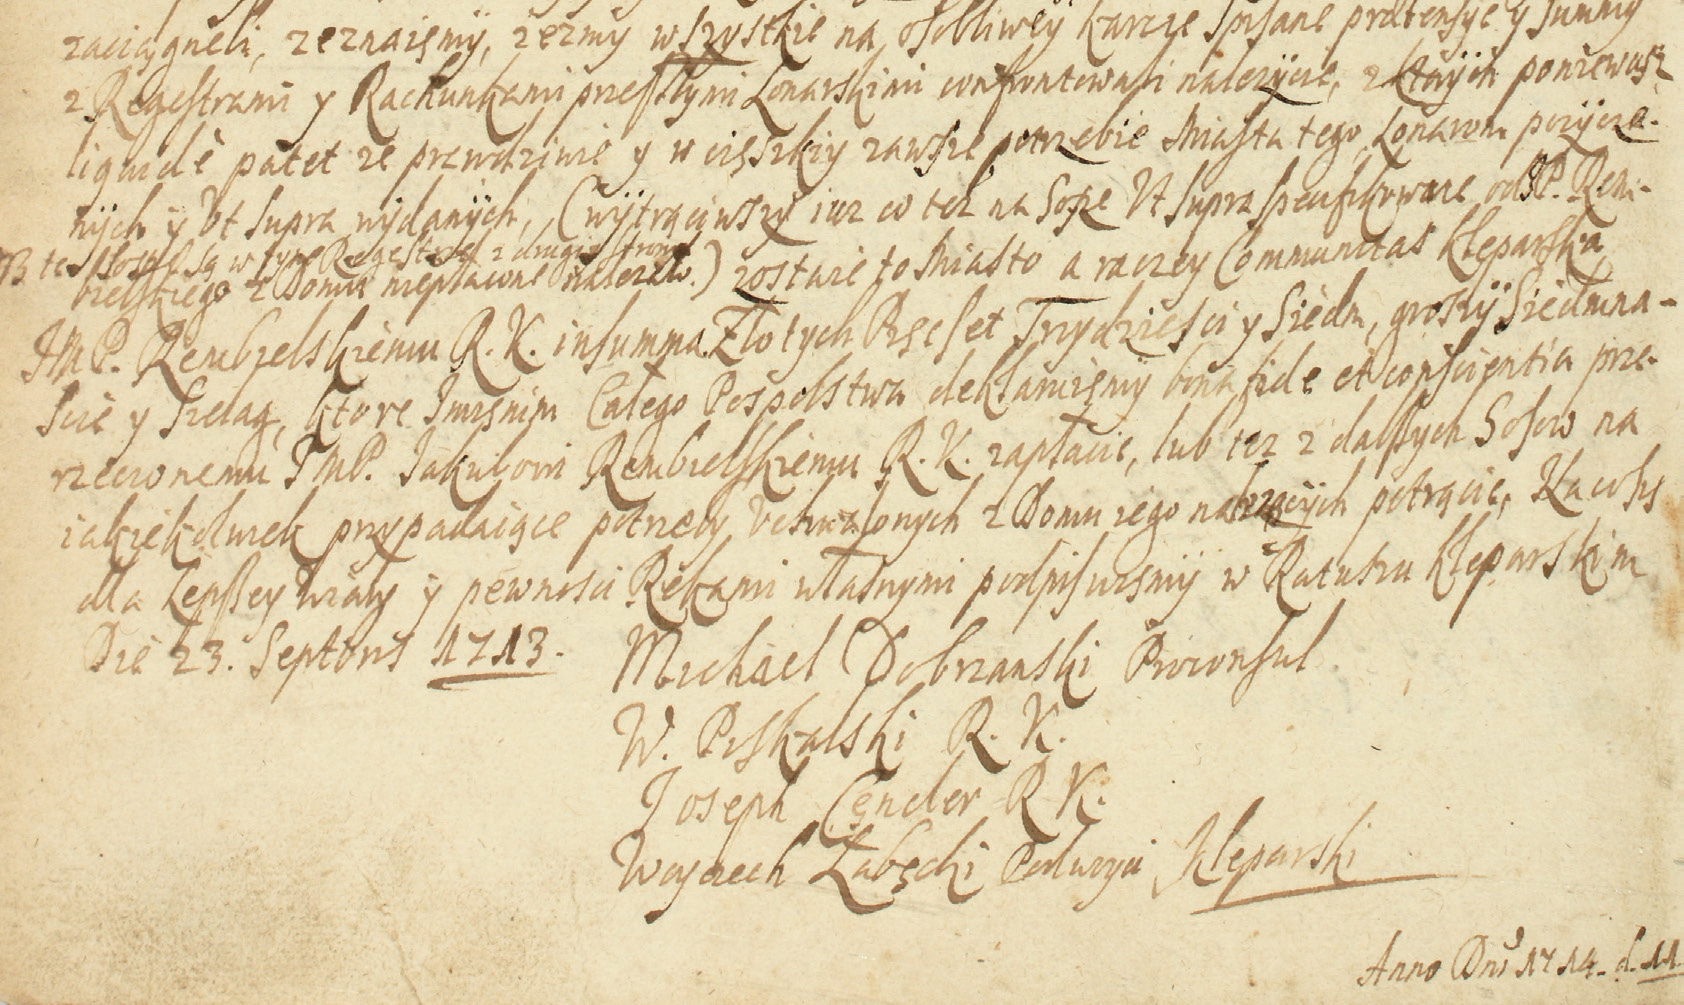 zaciągneli, zeznaięmy, żeżmy wszystkie na osobliwey karcie spisane prætensye y summy
z Regestrami y Rachunkami przeszłymi Lonarskimi confrontowali należycie, z których poniewasz
liquidè patet że prawdziwie y w cięszkiy zawsze potrzebie Miasta tego Lonarom pożycza-
nÿch y Vt supra wÿdanÿch, (wÿtrąciwszy iuz co też na Sosze Vt supra specifikowane od JP. Rem-
NB te Sosze są w tyże Regestrze z drugiey strony
bielskiego z Domu niepłacone należało.) zostaie to Miasto a raczey Communitas Kleparska
JMP. Rembielskiemu R. K. in summa Złotych Pięcset Trzydzieści y Siedm, groszÿ Siedmna-
ście y szelag, które Imięniem Całego Pospolstwa deklaruięmy bona fide et conscientia prze-
rzeczonemu JMP. Jakubowi Rembielskiemu R. K. zapłacic, lub też z dalszych Sosow na
iakiekolwiek przypadaiące potrzeby Vchwalonych z Domu iego należących potrącic, Na co się
dla Lepszey wiary y pewności Rękami własnymi podpisuięmÿ w Ratuszu Kleparskim
Die 23. Septbris 1713.
Michael Dobrzanski Proconsul
W. Piskalski R. K.
Joseph Cęnder R K.
Wojciech Łabęcki Podwoyci Kleparski
Anno Dni 1714. d. 11.